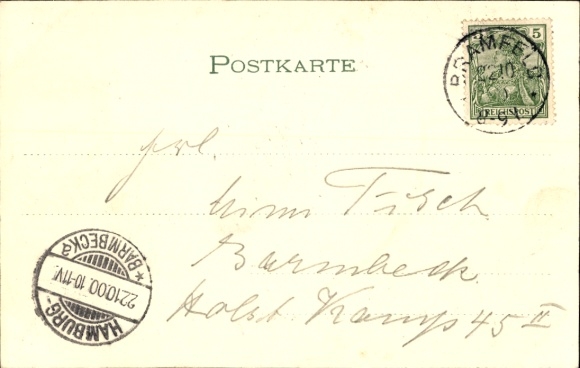 POSTKARTE
5
BRAMFELD
22 10
8-9V
REICHSPOST
Frl.
Mimi Tisch
Barmbeck
Holst Kamp 45 II
HAMBURG-
22.10.00.10-11V.
*BARMBECK*